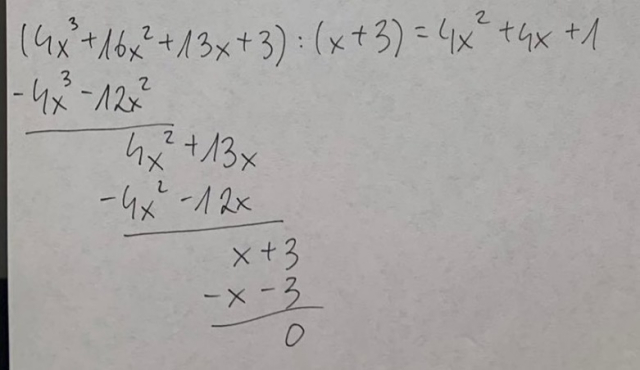 (4x³+16x²+13x+3):(x+3)=4x²+4x+1
-4x³-12x²
4x²+13x
-4x²-12x
x+3
-x-3
0